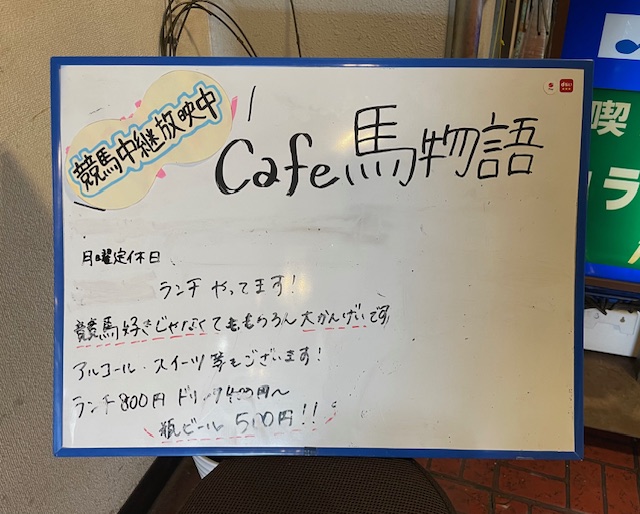 競馬中継放映中
Cafe 馬物語
月曜定休日
ランチ やってます!
競馬好きじゃなくてももちろん大かんげいです
アルコール・スイーツ等もございます!
ランチ800円 ドリンク400円〜
瓶ビール 500円!!
喫
ラ